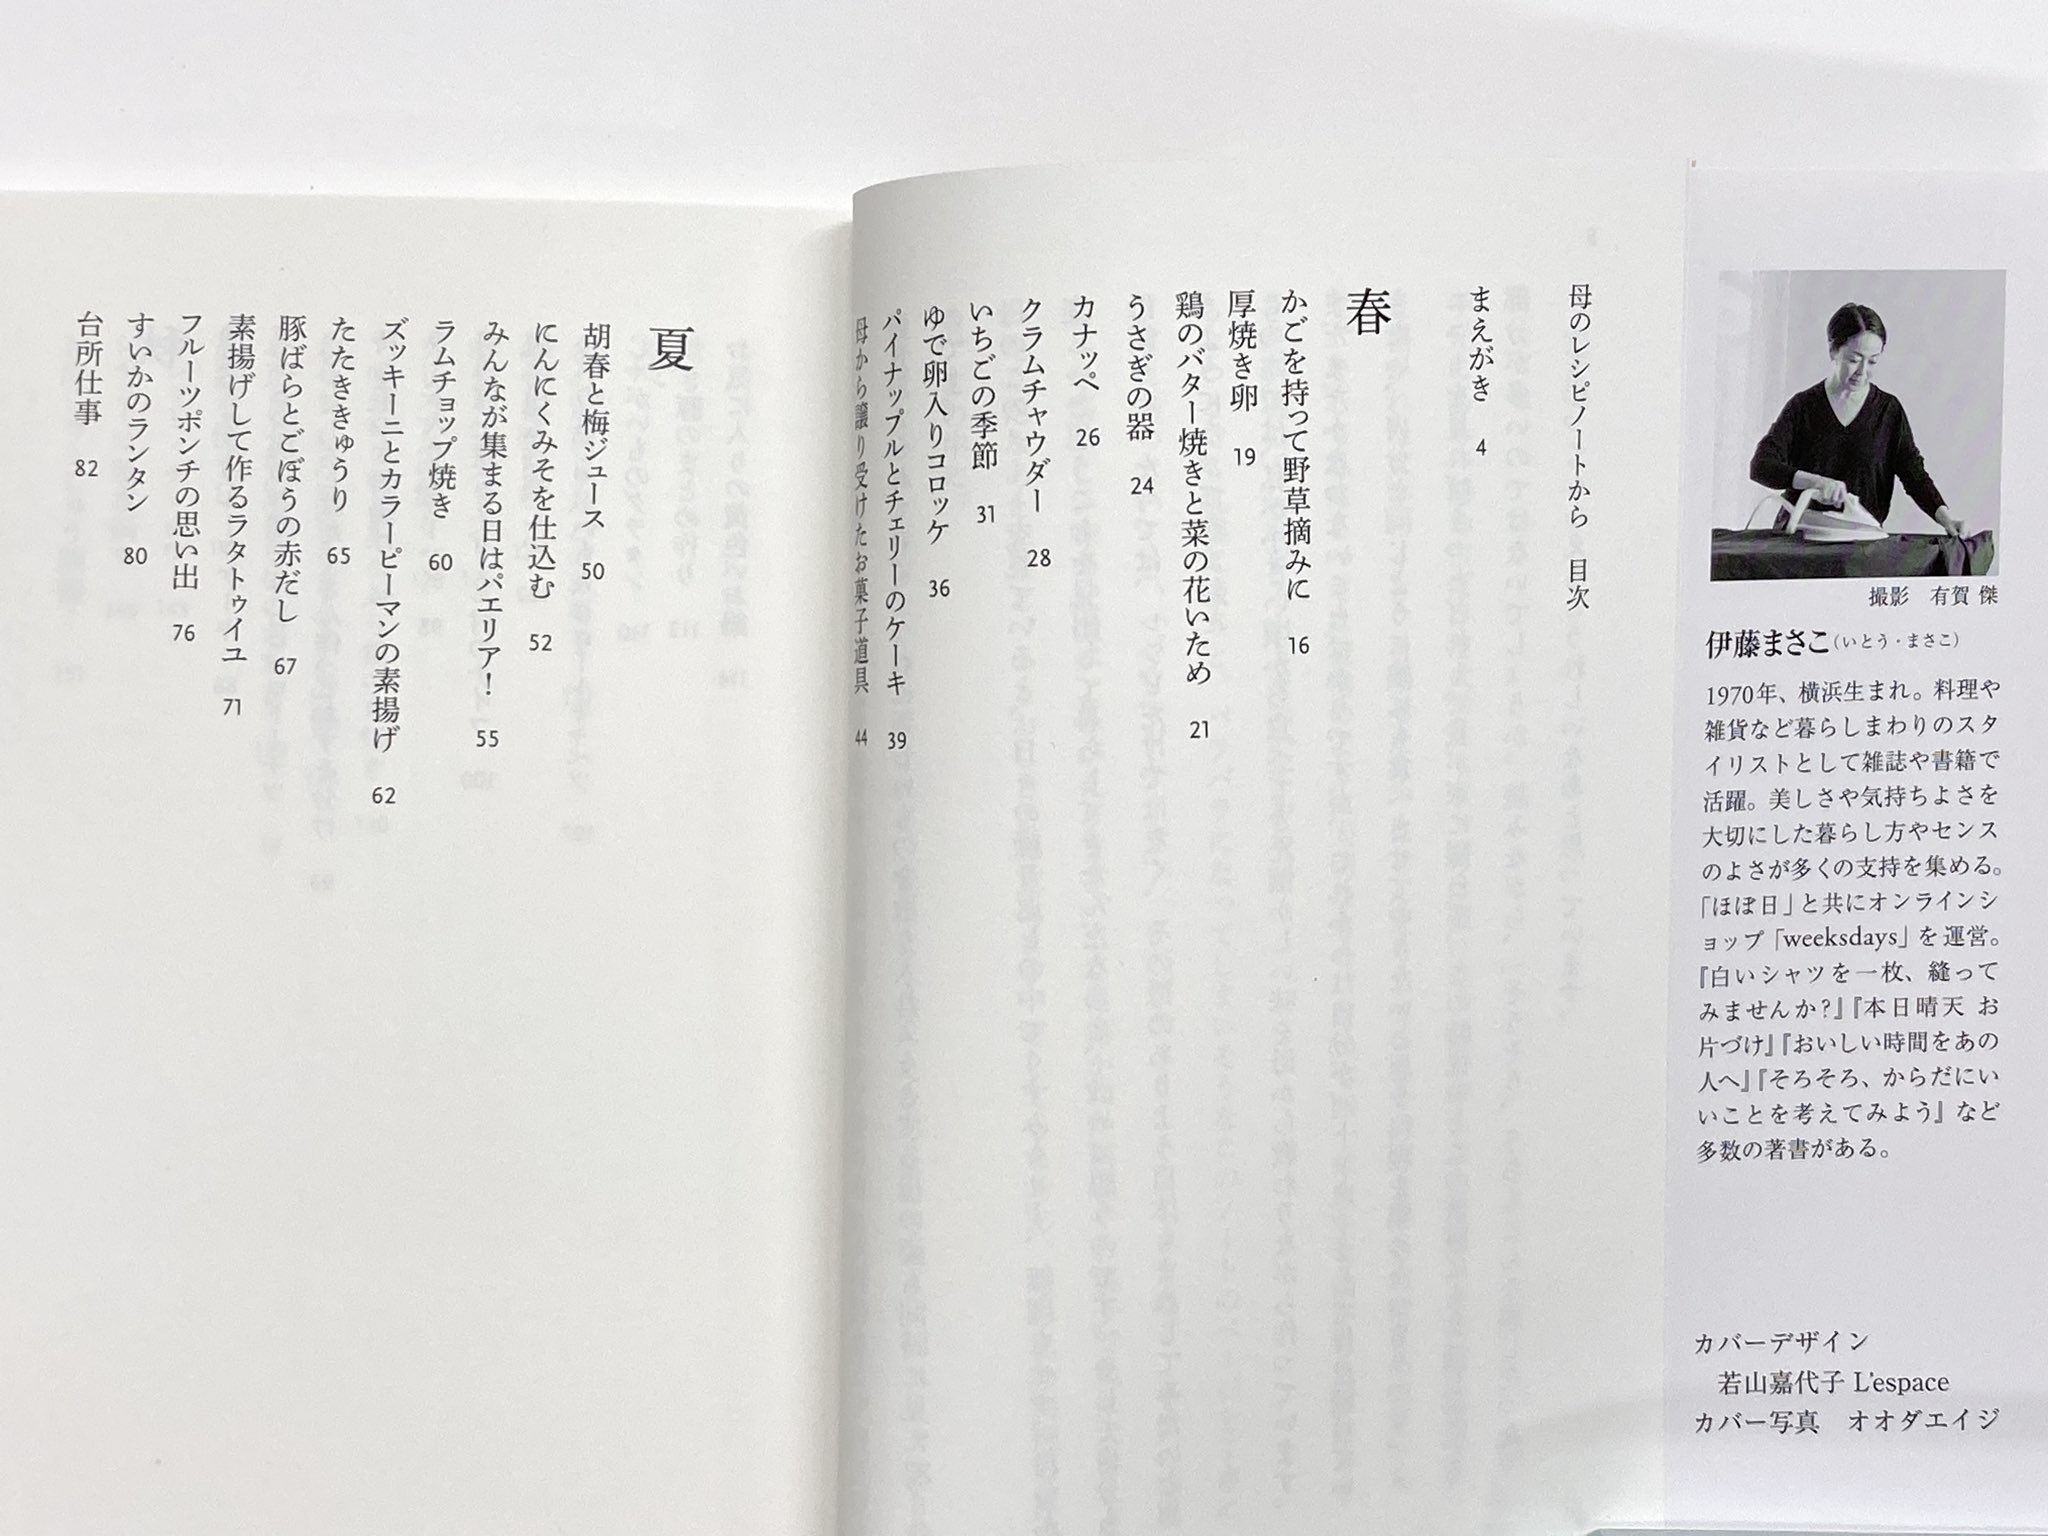 撮影　有賀 傑
伊藤まさこ（いとう・まさこ）
1970年、横浜生まれ。料理や
雑貨など暮らしまわりのスタ
イリストとして雑誌や書籍で
活躍。美しさや気持ちよさを
大切にした暮らし方やセンス
のよさが多くの支持を集める。
「ほぼ日」と共にオンラインシ
ョップ「weeksdays」を運営。
『白いシャツを一枚、縫って
みませんか?』『本日晴天 お
片づけ』『おいしい時間をあの
人へ』『そろそろ、からだにい
いことを考えてみよう』など
多数の著書がある。
カバーデザイン
若山嘉代子 L'espace
カバー写真　オオダエイジ
母のレシピノートから　目次
まえがき　4
春
かごを持って野草摘みに　16
厚焼き卵　19
鶏のバター焼きと菜の花いため　21
うさぎの器　24
カナッペ　26
クラムチャウダー　28
いちごの季節　31
ゆで卵入りコロッケ　36
パイナップルとチェリーのケーキ　39
母から譲り受けたお菓子道具　44
夏
胡春と梅ジュース　50
にんにくみそを仕込む　52
みんなが集まる日はパエリア！　55
ラムチョップ焼き　60
ズッキーニとカラーピーマンの素揚げ　62
たたききゅうり　65
豚ばらとごぼうの赤だし　67
素揚げして作るラタトゥイユ　71
フルーツポンチの思い出　76
すいかのランタン　80
台所仕事　82